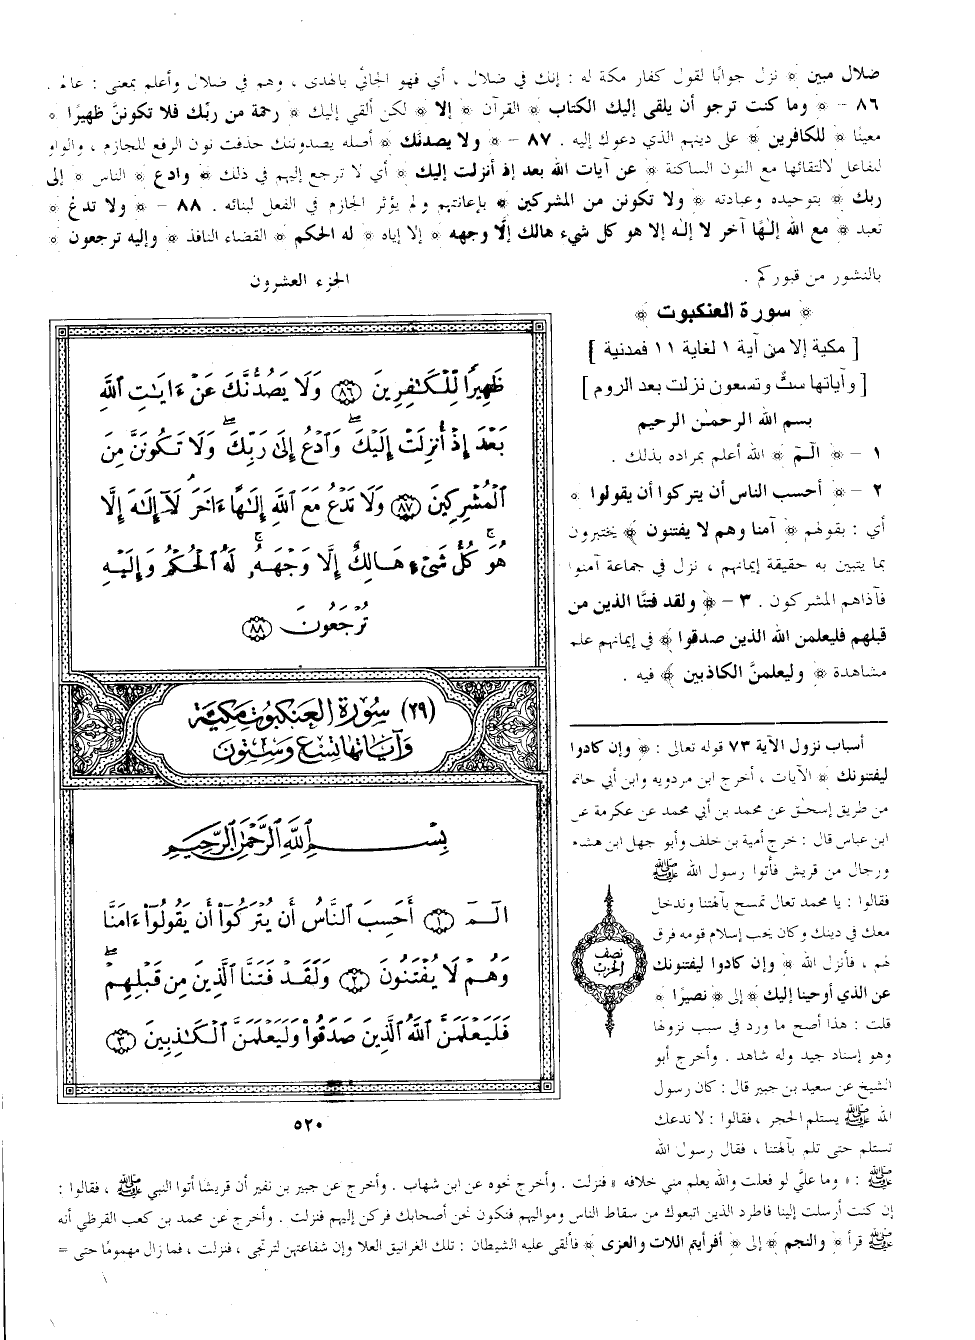 ضلال مبين ﴾ نزل جوابًا لقول كفار مكة له : إنك في ضلال ، أي فهو الجائي بالهدى ، وهم في ضلال وأعلم بمعنى : عالم .
٨٦ – ﴿ وما كنت ترجو أن يلقى إليك الكتاب ﴾ القرآن ﴿ إلا ﴾ لكن ألقي إليك ﴿ رحمة من ربّك فلا تكوننَّ ظهيرًا ﴾
معينًا ﴿ للكافرين ﴾ على دينهم الذي دعوك إليه . ٨٧ – ﴿ ولا يصدنّك ﴾ أصله يصدوننك حذفت نون الرفع للجازم ، والواو
للفاعل لالتقائها مع النون الساكنة ﴿ عن آيات الله بعد إذ أنزلت إليك ﴾ أي لا ترجع إليهم في ذلك ﴿ وادع ﴾ الناس ﴿ إلى
ربك ﴾ بتوحيده وعبادته ﴿ ولا تكونن من المشركين ﴾ بإعانتهم ولم يؤثر الجازم في الفعل لبنائه . ٨٨ – ﴿ ولا تدع ﴾
تعبد ﴿ مع الله إلـٰهًا آخر لا إلـٰه إلا هو كل شيء هالك إلَّا وجهه ﴾ إلا إياه ﴿ له الحكم ﴾ القضاء النافذ ﴿ وإليه ترجعون ﴾
بالنشور من قبوركم .
الجزء العشرون
﴿ سورة العنكبوت ﴾
[ مكية إلا من آية ١ لغاية ١١ فمدنية ]
[ وآياتها ستٌّ وتسعون نزلت بعد الروم ]
بسم الله الرحمـٰن الرحيم
١ – ﴿ الـمّ ﴾ الله أعلم بمراده بذلك .
٢ – ﴿ أحسب الناس أن يتركوا أن يقولوا ﴾
أي : بقولهم ﴿ آمنا وهم لا يفتنون ﴾ يختبرون
بما يتبين به حقيقة إيمانهم ، نزل في جماعة آمنوا
فآذاهم المشركون . ٣ – ﴿ ولقد فتنَّا الذين من
قبلهم فليعلمن الله الذين صدقوا ﴾ في إيمانهم علم
مشاهدة ﴿ وليعلمنَّ الكاذبين ﴾ فيه .
ظَهِيرًا لِّلْكَـٰفِرِينَ ﴿٨٦﴾ وَلَا يَصُدُّنَّكَ عَنْ ءَايَـٰتِ ٱللَّهِ
بَعْدَ إِذْ أُنزِلَتْ إِلَيْكَ ۖ وَٱدْعُ إِلَىٰ رَبِّكَ ۖ وَلَا تَكُونَنَّ مِنَ
ٱلْمُشْرِكِينَ ﴿٨٧﴾ وَلَا تَدْعُ مَعَ ٱللَّهِ إِلَـٰهًا ءَاخَرَ ۘ لَآ إِلَـٰهَ إِلَّا
هُوَ ۚ كُلُّ شَىْءٍ هَالِكٌ إِلَّا وَجْهَهُۥ ۚ لَهُ ٱلْحُكْمُ وَإِلَيْهِ
تُرْجَعُونَ ﴿٨٨﴾
(٢٩) سورة العنكبوت مكية
وآياتها تسع وستون
بِسْمِ ٱللَّهِ ٱلرَّحْمَـٰنِ ٱلرَّحِيمِ
الٓـمٓ ﴿١﴾ أَحَسِبَ ٱلنَّاسُ أَن يُتْرَكُوٓا۟ أَن يَقُولُوٓا۟ ءَامَنَّا
وَهُمْ لَا يُفْتَنُونَ ﴿٢﴾ وَلَقَدْ فَتَنَّا ٱلَّذِينَ مِن قَبْلِهِمْ ۖ
فَلَيَعْلَمَنَّ ٱللَّهُ ٱلَّذِينَ صَدَقُوا۟ وَلَيَعْلَمَنَّ ٱلْكَـٰذِبِينَ ﴿٣﴾
نصف
الحزب
٥٢٠
أسباب نزول الآية ٧٣ قوله تعالى : ﴿ وإن كادوا
ليفتنونك ﴾ الآيات ، أخرج ابن مردويه وابن أبي حاتم
من طريق إسحـٰق عن محمد بن أبي محمد عن عكرمة عن
ابن عباس قال : خرج أمية بن خلف وأبو جهل ابن هشام
ورجال من قريش فأتوا رسول الله ﷺ
فقالوا : يا محمد تعال تمسح بآلهتنا وندخل
معك في دينك وكان يحب إسلام قومه فرق
لهم ، فأنزل الله ﴿ وإن كادوا ليفتنونك
عن الذي أوحينا إليك ﴾ إلى ﴿ نصيرًا ﴾
قلت : هذا أصح ما ورد في سبب نزولها
وهو إسناد جيد وله شاهد . وأخرج أبو
الشيخ عن سعيد بن جبير قال : كان رسول
الله ﷺ يستلم الحجر ، فقالوا : لا ندعك
تستلم حتى تلم بآلهتنا ، فقال رسول الله
ﷺ : « وما عليَّ لو فعلت والله يعلم مني خلافه » فنزلت . وأخرج نحوه عن ابن شهاب . وأخرج عن جبير بن نفير أن قريشًا أتوا النبي ﷺ ، فقالوا :
إن كنت أرسلت إلينا فاطرد الذين اتبعوك من سقاط الناس ومواليهم فنكون نحن أصحابك فركن إليهم فنزلت . وأخرج عن محمد بن كعب القرظي أنه
ﷺ قرأ ﴿ والنجم ﴾ إلى ﴿ أفرأيتم اللات والعزى ﴾ فألقى عليه الشيطان : تلك الغرانيق العلا وإن شفاعتهن لترتجى ، فنزلت ، فما زال مهمومًا حتى =